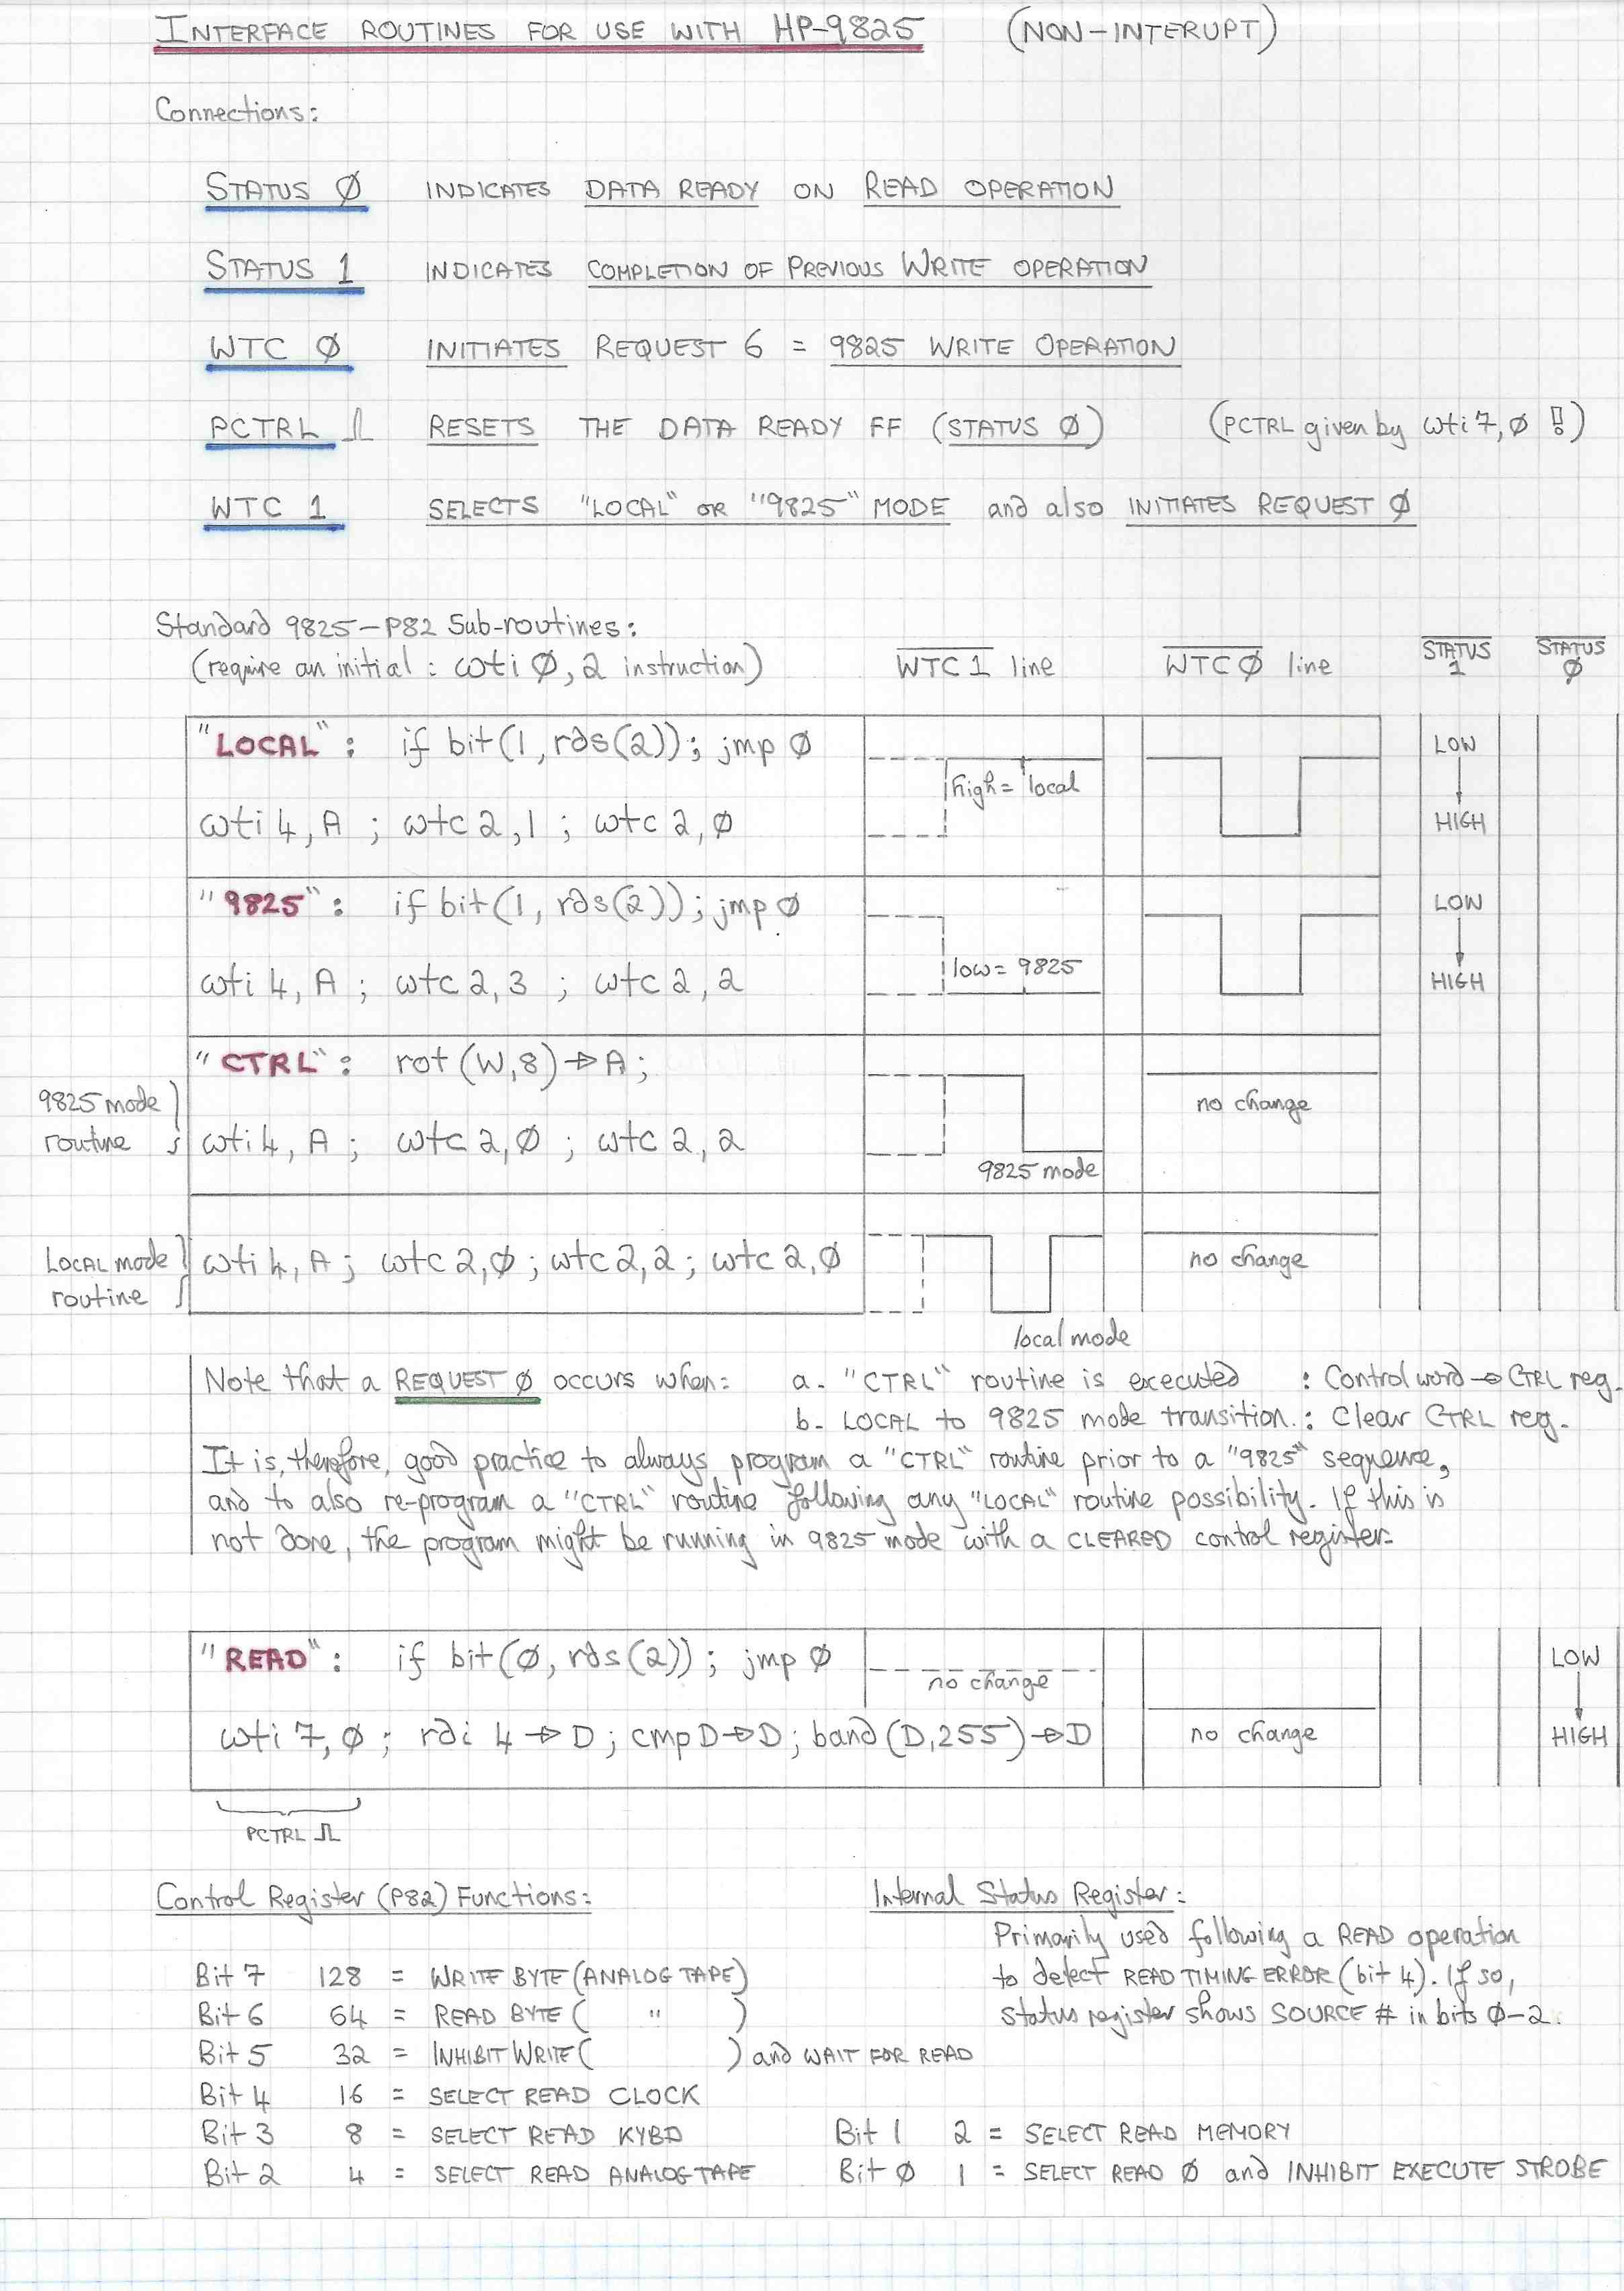 INTERFACE ROUTINES FOR USE WITH HP-9825 (NON-INTERUPT)
Connections:
STATUS Ø INDICATES DATA READY ON READ OPERATION
STATUS 1 INDICATES COMPLETION OF PREVIOUS WRITE OPERATION
WTC Ø INITIATES REQUEST 6 = 9825 WRITE OPERATION
PCTRL RESETS THE DATA READY FF (STATUS Ø) (PCTRL given by wti 7, Ø !!)
WTC 1 SELECTS "LOCAL" OR "9825" MODE and also INITIATES REQUEST Ø
Standard 9825-P82 Sub-routines:
(require an initial: wti Ø, 2 instruction) WTC 1 line WTC Ø line STATUS 1 STATUS Ø
"LOCAL": if bit(1, rds(2)); jmp Ø LOW
high = local
wti 4, A ; wtc 2, 1 ; wtc 2, Ø HIGH
"9825": if bit(1, rds(2)); jmp Ø LOW
low = 9825
wti 4, A ; wtc 2, 3 ; wtc 2, 2 HIGH
"CTRL": rot(W, 8) → A;
9825 mode no change
routine wti 4, A ; wtc 2, Ø ; wtc 2, 2
9825 mode
LOCAL mode wti 4, A ; wtc 2, Ø ; wtc 2, 2 ; wtc 2, Ø no change
routine
local mode
Note that a REQUEST Ø occurs when: a. "CTRL" routine is executed : Control word → CTRL reg.
b. LOCAL to 9825 mode transition. : Clear CTRL reg.
It is, therefore, good practice to always program a "CTRL" routine prior to a "9825" sequence,
and to also re-program a "CTRL" routine following any "LOCAL" routine possibility. If this is
not done, the program might be running in 9825 mode with a CLEARED control register.
"READ": if bit(Ø, rds(2)); jmp Ø LOW
no change
wti 7, Ø ; rdi 4 → D ; cmp D → D ; band(D, 255) → D no change HIGH
PCTRL
Control Register (P82) Functions: Internal Status Register:
Primarily used following a READ operation
Bit 7 128 = WRITE BYTE (ANALOG TAPE) to detect READ TIMING ERROR (bit 4). If so,
Bit 6 64 = READ BYTE ( " ) status register shows SOURCE # in bits Ø-2.
Bit 5 32 = INHIBIT WRITE ( ) and WAIT FOR READ
Bit 4 16 = SELECT READ CLOCK
Bit 3 8 = SELECT READ KYBD Bit 1 2 = SELECT READ MEMORY
Bit 2 4 = SELECT READ ANALOG TAPE Bit Ø 1 = SELECT READ Ø and INHIBIT EXECUTE STROBE